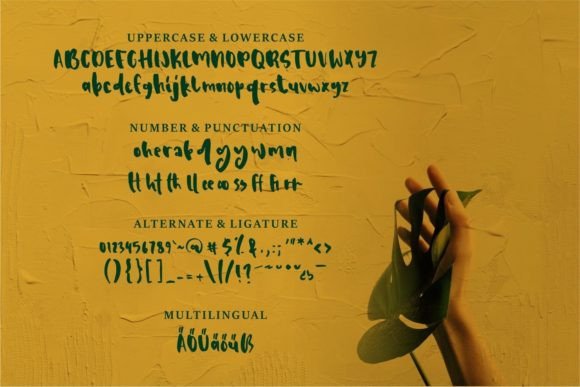 UPPERCASE & LOWERCASE
ABCDEFGHIJKLMNOPQRSTUVWXYZ
abcdefghijklmnopqrstuvwxyz
NUMBER & PUNCTUATION
oherabdgywmn
tt ht th ll ee oo ss ff
ALTERNATE & LIGATURE
0123456789`~@#$%&.,:;'"*^<>
(){}[]_-=+\|/!?
MULTILINGUAL
ÄÖÜäöüß